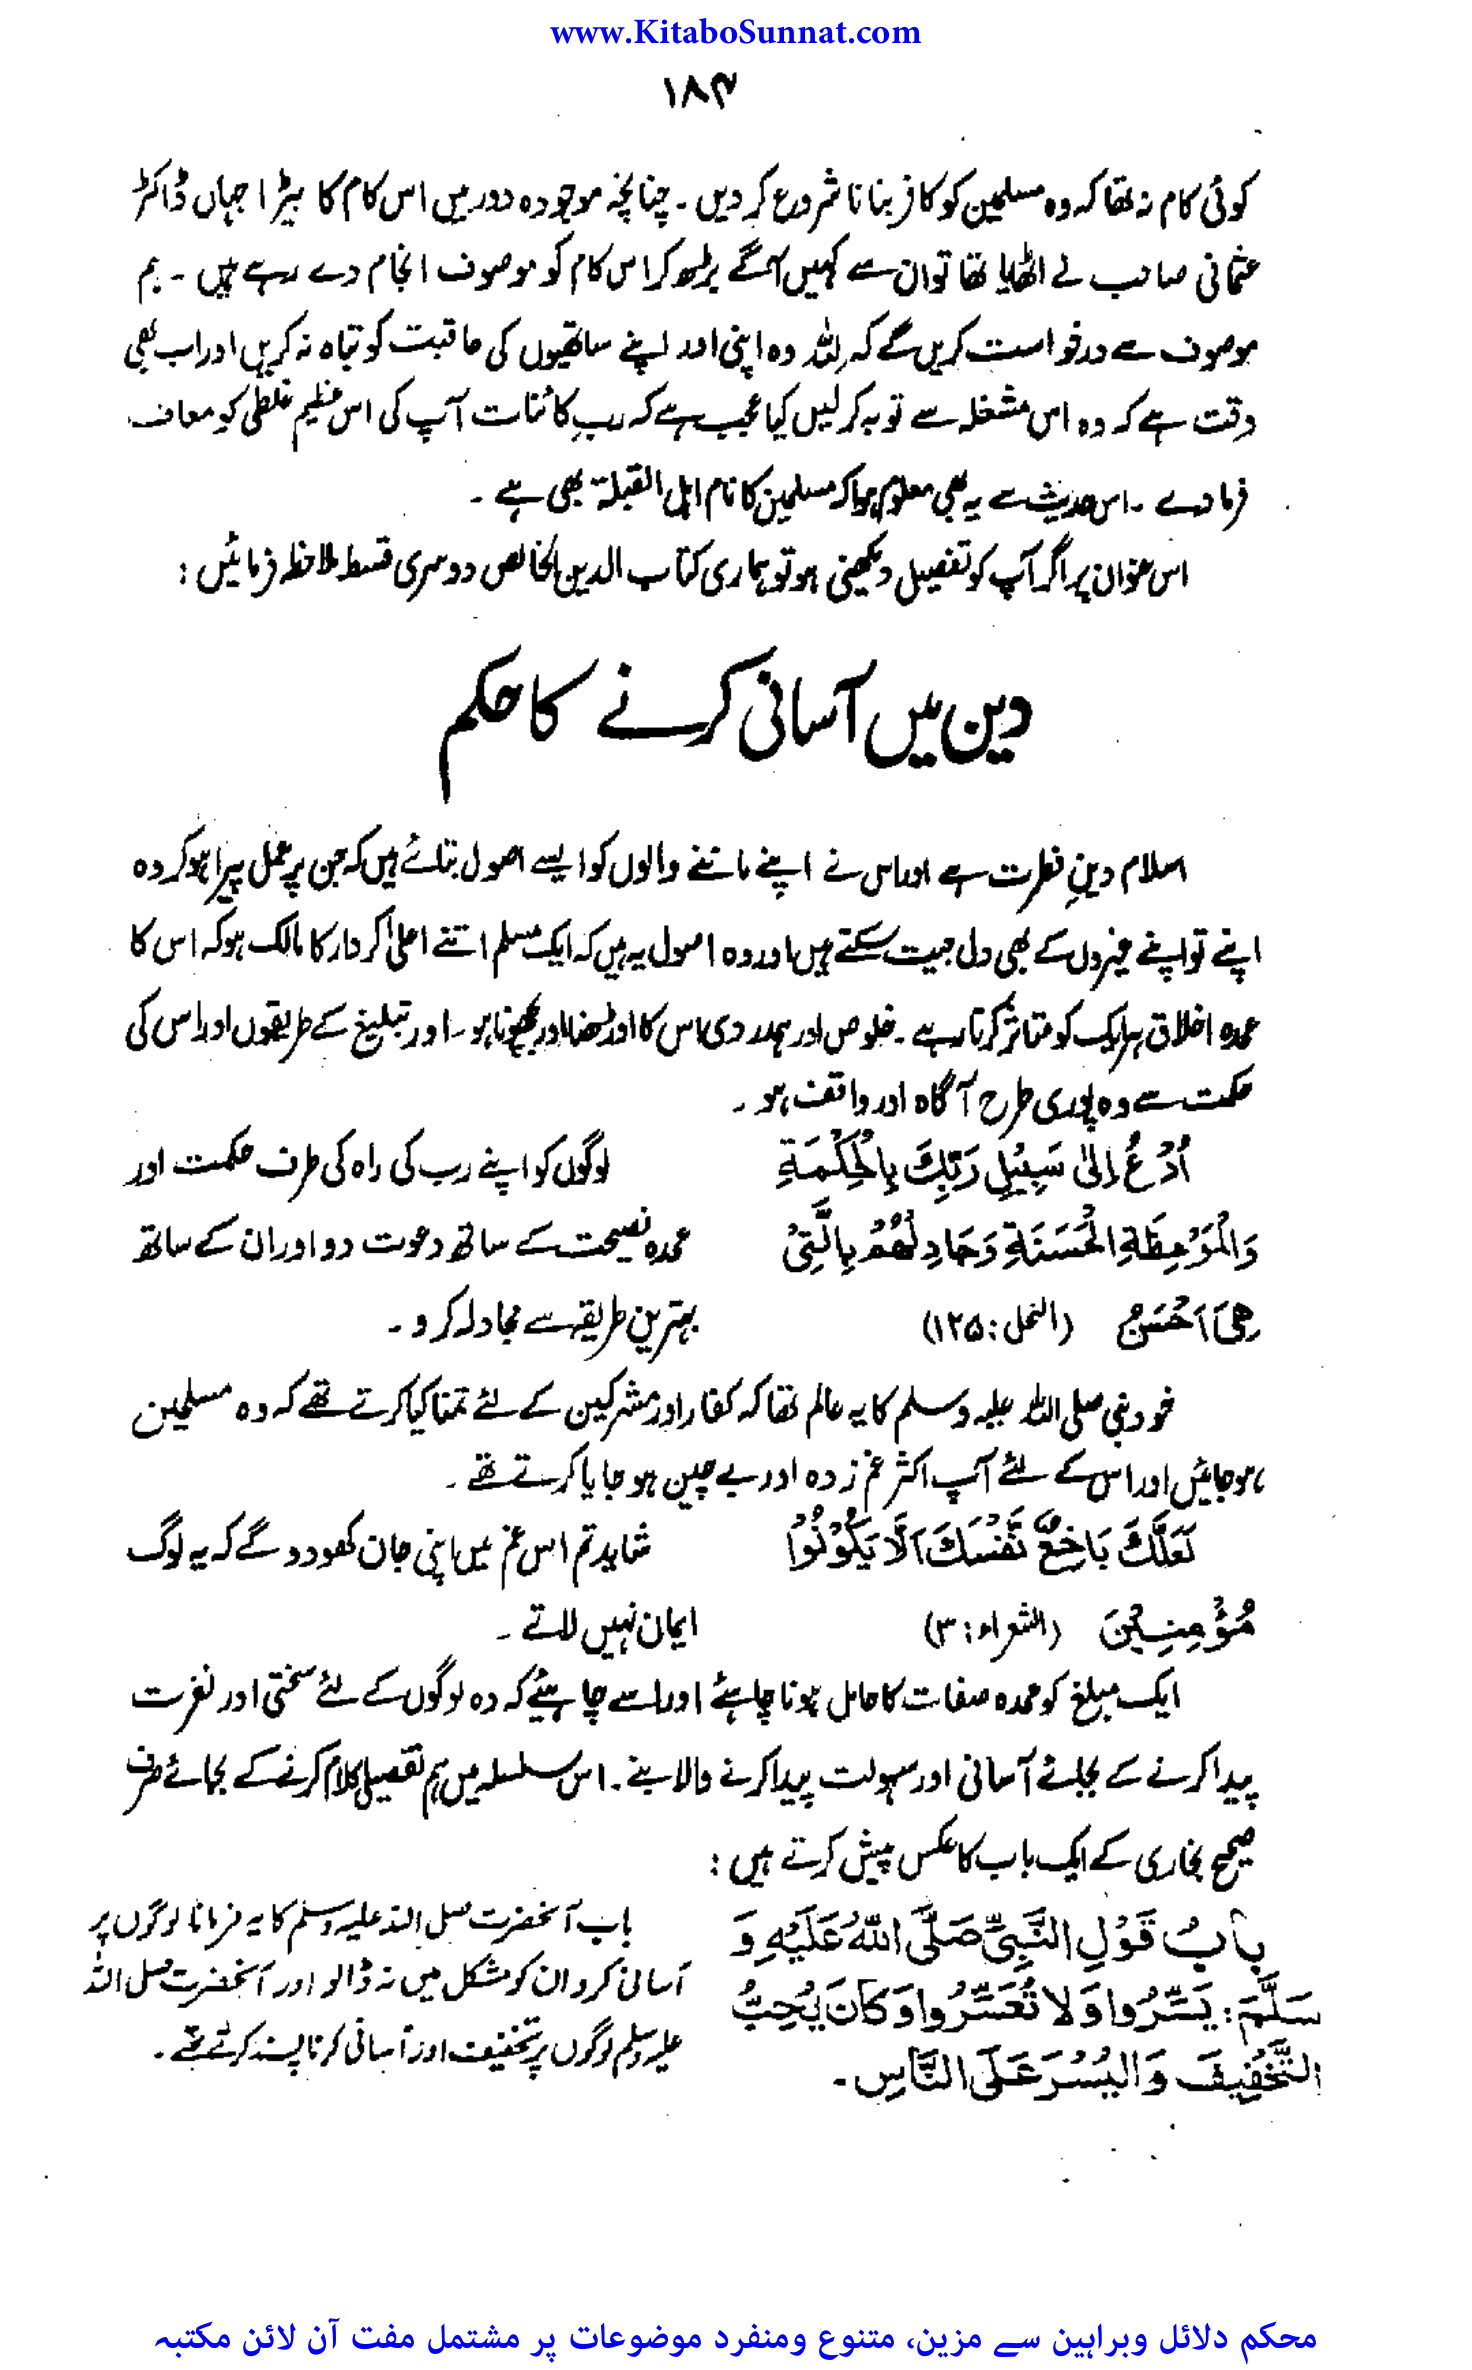 www.KitaboSunnat.com
۱۸۴
کوئی کام نہ تھا کہ وہ مسلمین کو کافر بنانا شروع کر دیں ۔ چنانچہ موجودہ دور میں اس کام کا بیڑا جہاں ڈاکٹر
عثمانی صاحب نے اٹھایا تھا تو ان سے کہیں آگے بڑھ کر اس کام کو موصوف انجام دے رہے ہیں ۔ ہم
موصوف سے درخواست کریں گے کہ للہ وہ اپنی اور اپنے ساتھیوں کی عاقبت کو تباہ نہ کریں اور اب بھی
وقت ہے کہ وہ اس مشغلہ سے توبہ کر لیں کیا عجب ہے کہ ربِ کائنات آپ کی اس عظیم غلطی کو معاف
فرما دے ۔ اس حدیث سے یہ بھی معلوم ہوا کہ مسلمین کا نام اہل القبلۃ بھی ہے ۔
اس عنوان پر اگر آپ کو تفصیل دیکھنی ہو تو ہماری کتاب الدین الخالص دوسری قسط ملاحظہ فرمائیں :
دین میں آسانی کرنے کا حکم
اسلام دینِ فطرت ہے اور اس نے اپنے ماننے والوں کو ایسے اصول بتائے ہیں کہ جن پر عمل پیرا ہو کر وہ
اپنے تو اپنے غیروں کے بھی دل جیت سکتے ہیں اور وہ اصول یہ ہیں کہ ایک مسلم اتنے اعلیٰ کردار کا مالک ہو کہ اس کا
عمدہ اخلاق ہر ایک کو متاثر کرتا رہے ۔ خلوص اور ہمدردی اس کا اوڑھنا اور بچھونا ہو ۔ اور تبلیغ کے طریقوں اور اس کی
حکمت سے وہ پوری طرح آگاہ اور واقف ہو ۔
اُدْعُ اِلٰى سَبِيْلِ رَبِّكَ بِالْحِكْمَةِ
وَالْمَوْعِظَةِ الْحَسَنَةِ وَجَادِلْهُمْ بِالَّتِيْ
هِيَ اَحْسَنُ (النحل : ۱۲۵)
لوگوں کو اپنے رب کی راہ کی طرف حکمت اور
عمدہ نصیحت کے ساتھ دعوت دو اور ان کے ساتھ
بہترین طریقہ سے مجادلہ کرو ۔
خود نبی صلی اللہ علیہ وسلم کا یہ عالم تھا کہ کفار اور مشرکین کے لئے تمنا کیا کرتے تھے کہ وہ مسلمین
ہو جائیں اور اس کے لئے آپ اکثر غم زدہ اور بے چین ہو جایا کرتے تھے ۔
لَعَلَّكَ بَاخِعٌ نَّفْسَكَ اَلَّا يَكُوْنُوْا
مُؤْمِنِيْنَ (الشعراء : ۳)
شاید تم اس غم میں اپنی جان کھو دو گے کہ یہ لوگ
ایمان نہیں لاتے ۔
ایک مبلغ کو عمدہ صفات کا حامل ہونا چاہئے اور اسے چاہیئے کہ وہ لوگوں کے لئے سختی اور نفرت
پیدا کرنے کے بجائے آسانی اور سہولت پیدا کرنے والا بنے ۔ اس سلسلہ میں ہم تفصیلی کلام کرنے کے بجائے صرف
صحیح بخاری کے ایک باب کا عکس پیش کرتے ہیں :
بَابُ قَوْلِ النَّبِيِّ صَلَّى اللّٰهُ عَلَيْهِ وَ
سَلَّمَ : يَسِّرُوا وَلَا تُعَسِّرُوا وَكَانَ يُحِبُّ
التَّخْفِيفَ وَالْيُسْرَ عَلَى النَّاسِ ۔
باب آنحضرت صلی اللہ علیہ وسلم کا یہ فرمانا لوگوں پر
آسانی کرو ان کو مشکل میں نہ ڈالو اور آنحضرت صلی اللہ
علیہ وسلم لوگوں پر تخفیف اور آسانی کرنا پسند کرتے تھے ۔
محکم دلائل وبراہین سے مزین، متنوع ومنفرد موضوعات پر مشتمل مفت آن لائن مکتبہ